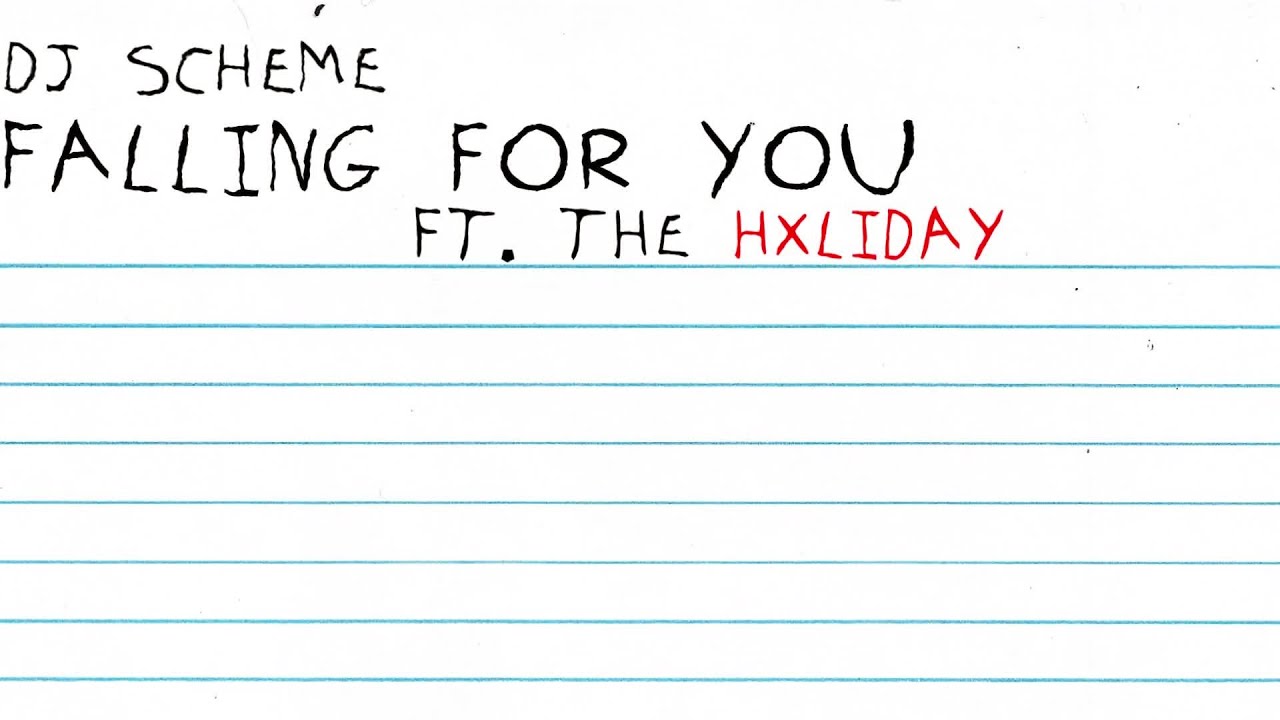 DJ SCHEME
FALLING FOR YOU
FT. THE HXLIDAY